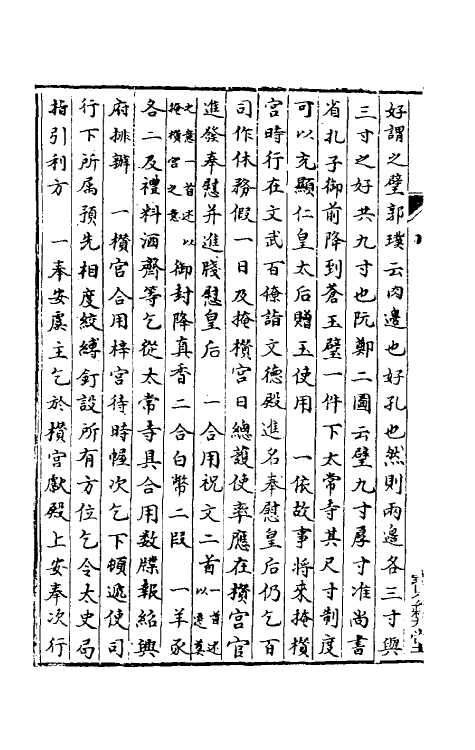 好謂之璧郭璞云肉邊也好孔也然則兩邊各三寸與
三寸之好共九寸也阮鄭二圖云璧九寸厚寸准尚書
省孔子御前降到蒼玉璧一件下太常寺其尺寸制度
可以充顯仁皇太后贈玉使用　一依故事將來掩欑
宮時行在文武百僚詣文德殿進名奉慰皇后仍乞百
司作休務假一日及掩欑宮日總護使率應在欑宮官
進發奉慰并進牋慰皇后　一合用祝文二首一首述以遷奠
之意一首述以掩欑宮之意御封降真香二合白幣二段　一羊豕
各二及禮料酒齊等乞從太常寺具合用數牒報紹興
府排辦　一欑宮合用梓宮待時幄次乞下頓遞使司
行下所屬預先相度絞縛釘設所有方位乞令太史局
指引利方　一奉安虞主乞於欑宮獻殿上安奉次行